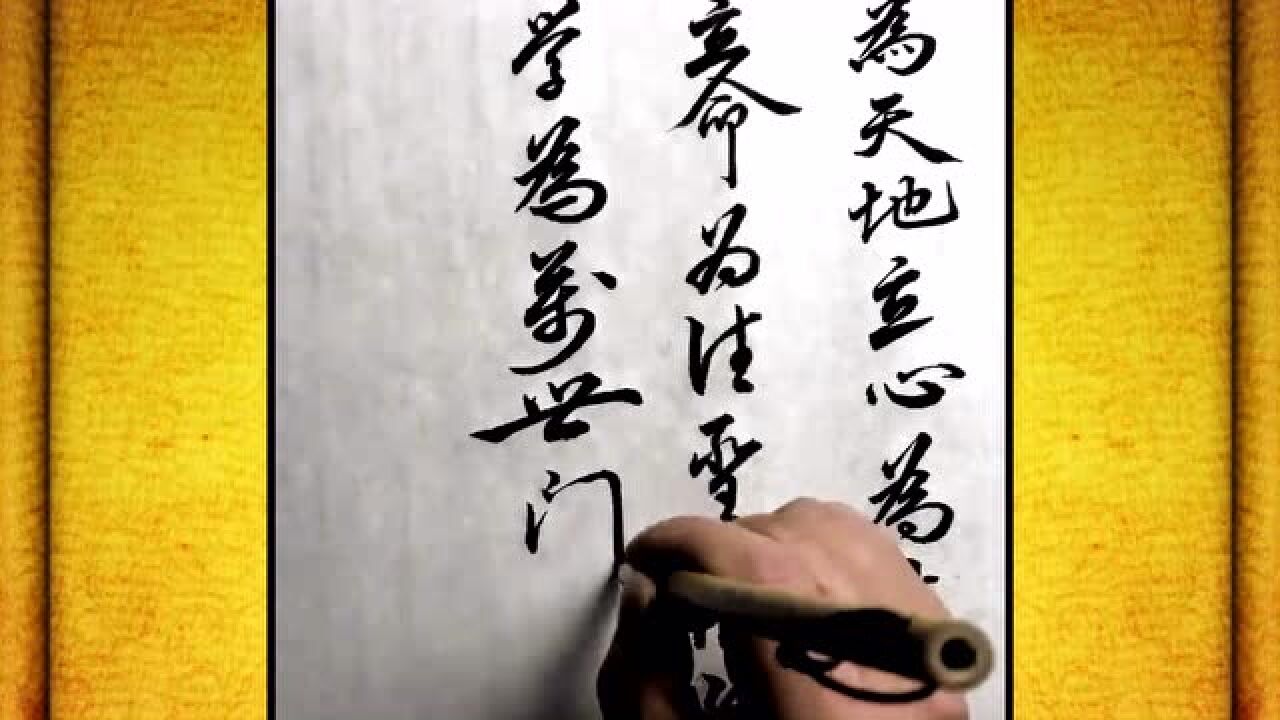 為天地立心為
立命为往聖
学為萬世门